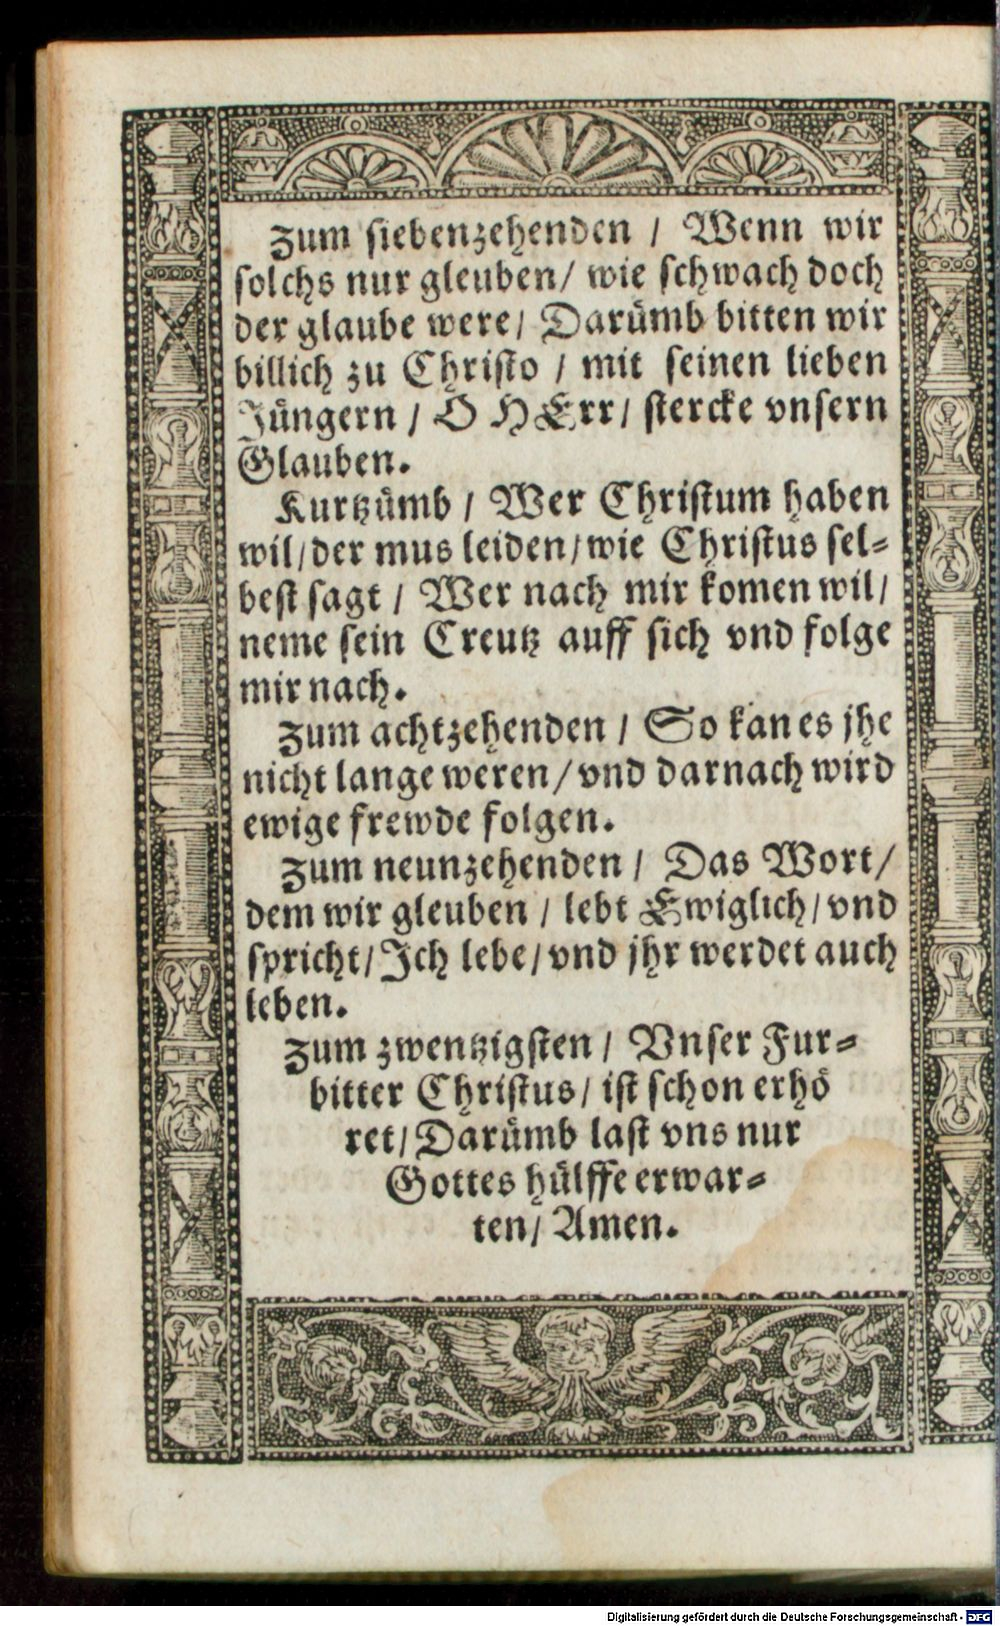 Zum siebenzehenden / Wenn wir
solchs nur gleuben / wie schwach doch
der glaube were / Darümb bitten wir
billich zu Christo / mit seinen lieben
Jüngern / O HErr / stercke vnsern
Glauben.
Kurtzümb / Wer Christum haben
wil / der mus leiden / wie Christus sel-
best sagt / Wer nach mir komen wil /
neme sein Creutz auff sich vnd folge
mir nach.
Zum achtzehenden / So kan es jhe
nicht lange weren / vnd darnach wird
ewige frewde folgen.
Zum neunzehenden / Das Wort /
dem wir gleuben / lebt Ewiglich / vnd
spricht / Ich lebe / vnd jhr werdet auch
leben.
Zum zwentzigsten / Vnser Fur-
bitter Christus / ist schon erhö
ret / Darümb last vns nur
Gottes hülffe erwar-
ten / Amen.
Digitalisierung gefördert durch die Deutsche Forschungsgemeinschaft - DFG